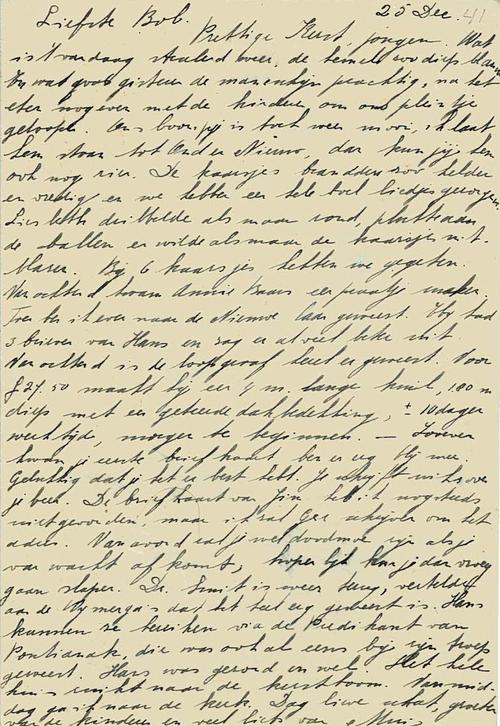 Liefste Bob. 25 Dec. 41
Prettige Kerst jongen. Wat
is 't vandaag stralend weer, de hemel zoo diep blauw
En wat was gisteren de maneschijn prachtig, na het
eten nog even met de kinderen om ons pleintje
geloopen. Ons boompje is toch weer mooi, ik laat
hem staan tot Oud en Nieuw, dan kun jij hem
ook nog zien. De kaarsjes brandden zoo helder
en vredig en we hebben een hele boel liedjes gezongen.
Liesbeth dribbelde als maar rond, plukte aan
de ballen en wilde als maar de kaarsjes uit-
blazen. Bij 6 kaarsjes hebben we gegeten.
Vanochtend kwam Annie Baars een praatje maken.
Toen ben ik even naar de Nieuwe laan geweest. Hij had
3 brieven van Hans en zag er al veel beter uit.
Vanochtend is de loopgraaf heer geweest. Voor
ƒ 27.50 maakt hij een 4 m. lange kuil, 180 m
diep met een gebeerde dakbedekking, ± 10 dagen
werktijd, morgen te beginnen. — Zoo even
kwam je eerste briefkaart, ben er erg blij mee.
Gelukkig dat je het er best hebt. Je schrijft niets over
je been. De briefkaart van Fien heb ik nog steeds
niet gevonden, maar ik zal Gee schrijven om het
adres. Vanavond zal je wel doodmoe zijn als je
van wacht af komt, hopelijk kun je dan vroeg
gaan slapen. Dr. Smit is weer terug, vertelde
aan de Wymenga's dat het heel erg gebeurt is. Hans
kunnen ze bereiken via de Predikant van
Pontianak, die was ook al eens bij zijn troep
geweest. Hans was gezond en wel. Het hele
huis ruikt naar de kerstboom. Vanmid-
dag ga ik naar de kerk. Dag lieve schat, groeten
van de kinderen en veel liefs van